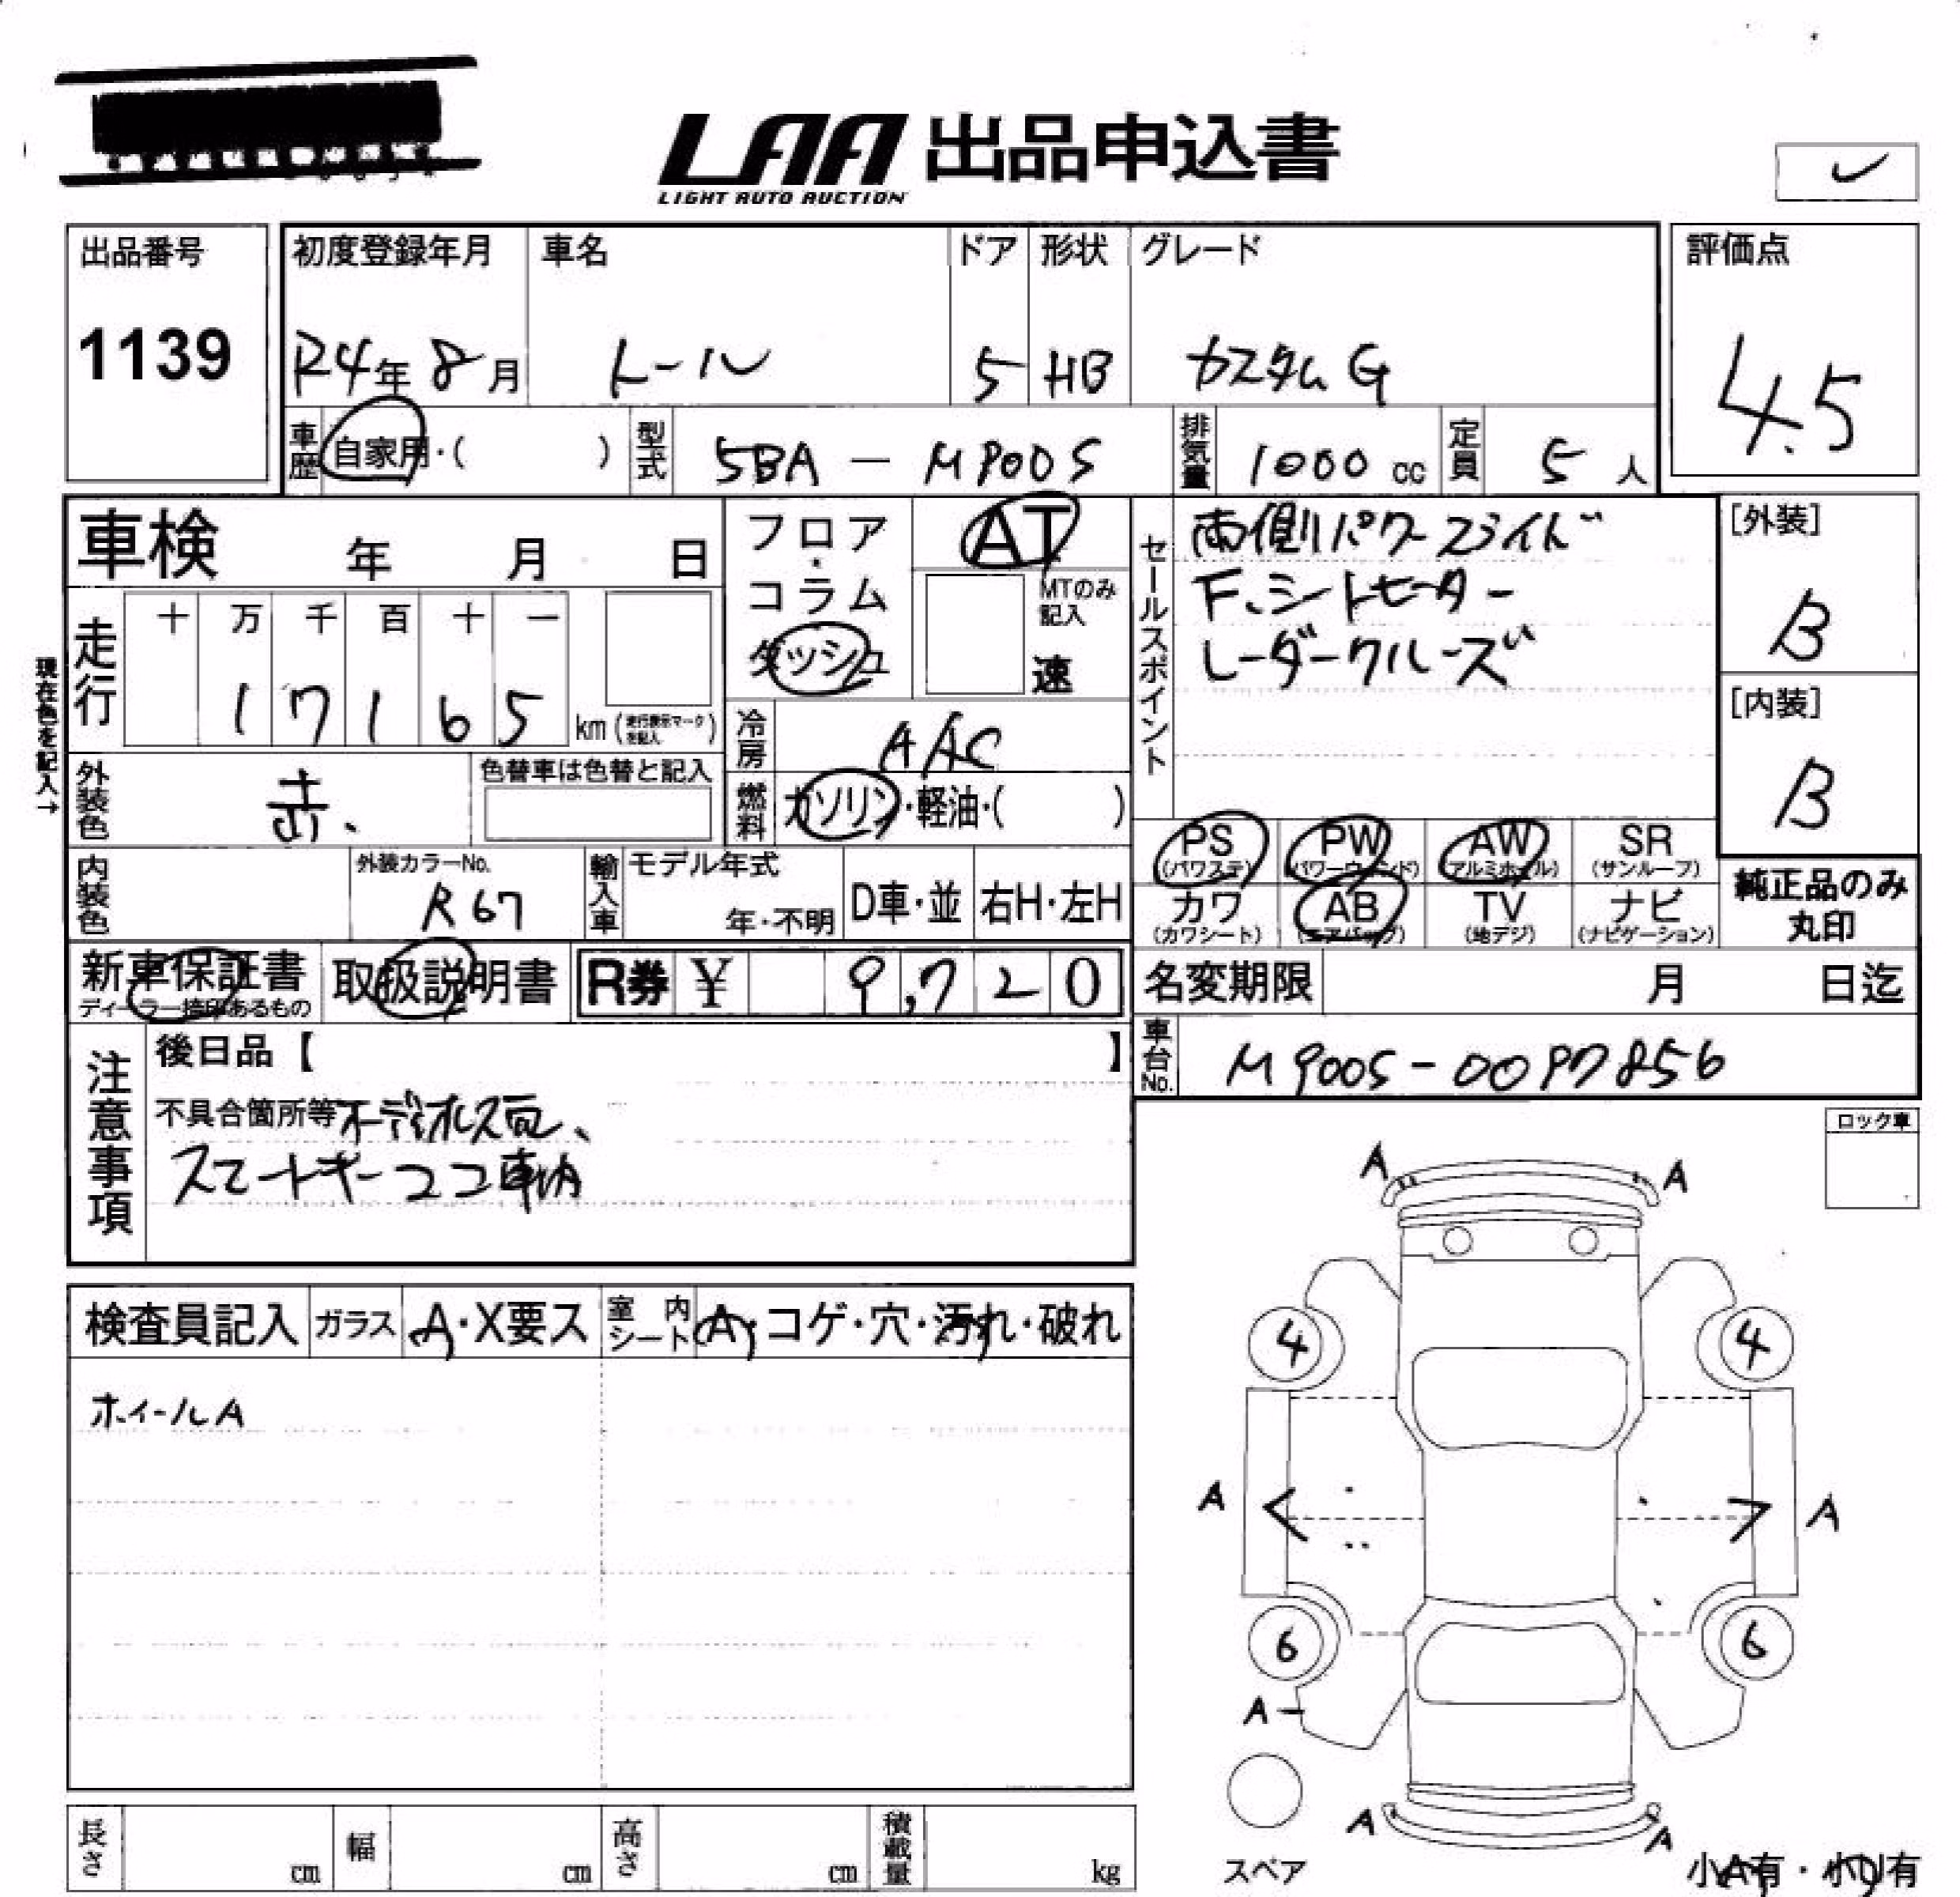 LAA 出品申込書
LIGHT AUTO AUCTION
出品番号
1139
初度登録年月
R4年 8月
車名
トール
ドア
5
形状
HB
グレード
カスタム G
評価点
4.5
車歴
自家用・( )
型式
5BA - M900S
排気量
1000 cc
定員
5 人
車検 年 月 日
フロア・コラム
ダッシュ
AT
MTのみ記入
速
セールスポイント
両側パワースライド
F、シートヒーター
レーダークルーズ
[外装]
B
[内装]
B
現在色を記入→
走行
十 万 千 百 十 一
1 7 1 6 5
km (走行表示マークを記入)
冷房
AAC
外装色
赤.
色替車は色替と記入
燃料
ガソリン・軽油・( )
PS (パワステ)
PW (パワーウィンド)
AW (アルミホイル)
SR (サンルーフ)
カワ (カワシート)
AB (エアバッグ)
TV (地デジ)
ナビ (ナビゲーション)
純正品のみ
丸印
内装色
外装カラーNo.
R67
輸入車
モデル年式
年・不明
D車・並
右H・左H
新車保証書
ディーラー捺印あるもの
取扱説明書
R券 ¥ 9,720
名変期限 月 日迄
車台No.
M900S-0097856
注意事項
後日品【 】
不具合箇所等 オーディオレス車、
スマートキーココ車内
ロック車
検査員記入
ガラス
A・X要ス
室内シート
A・コゲ・穴・汚れ・破れ
ホイールA
A A
4 4
A A
6 6
A
A A
スペア
小A有・小U有
長さ cm
幅 cm
高さ cm
積載量 kg